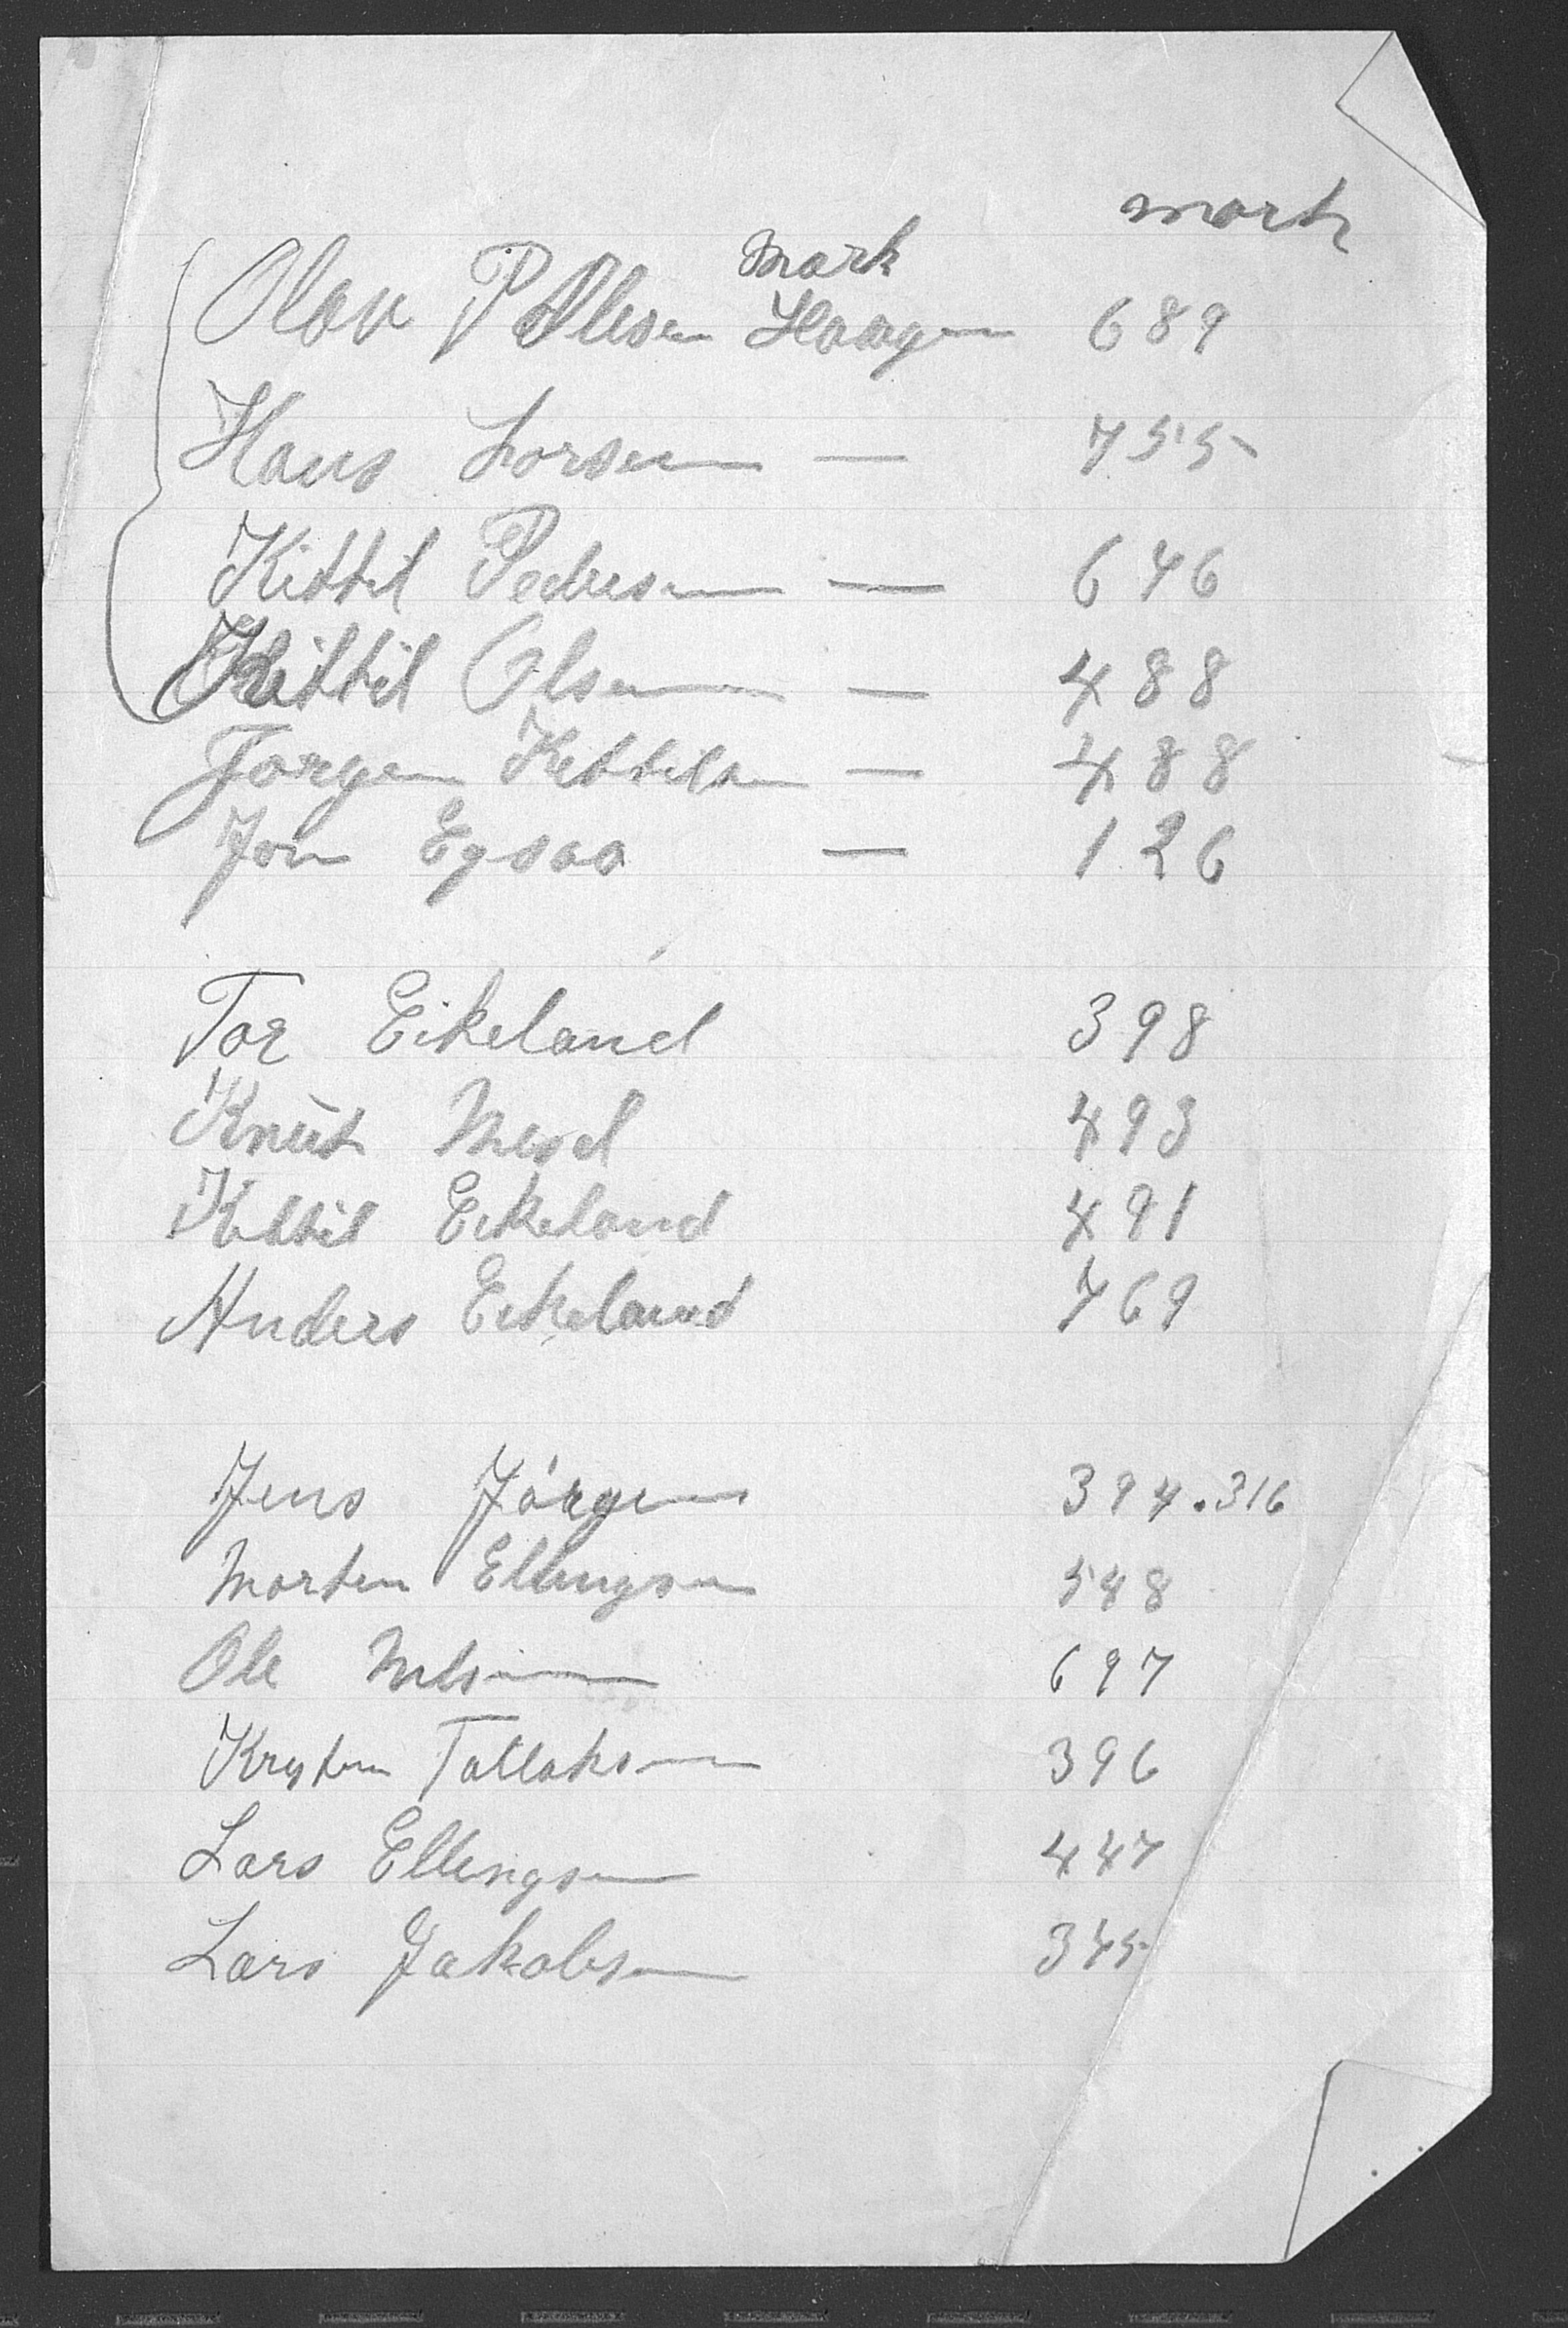 mark
mark
Olav P Olesen Haagen 689
Hans Larsen — 755
Kittil Pedersen — 646
Kittil Olsen — 488
Jørgen Kettilsen — 488
Jon Egsaa — 126
Tor Eikeland 398
Knut Mesel 493
Kettil Eikeland 491
Anders Eikeland 769
Jens Jörgen 394.316
Morten Ellingsen 548
Ole Nilsen 697
Krysten Tallaksen 396
Lars Ellingsen 447
Lars Jakobsen 345